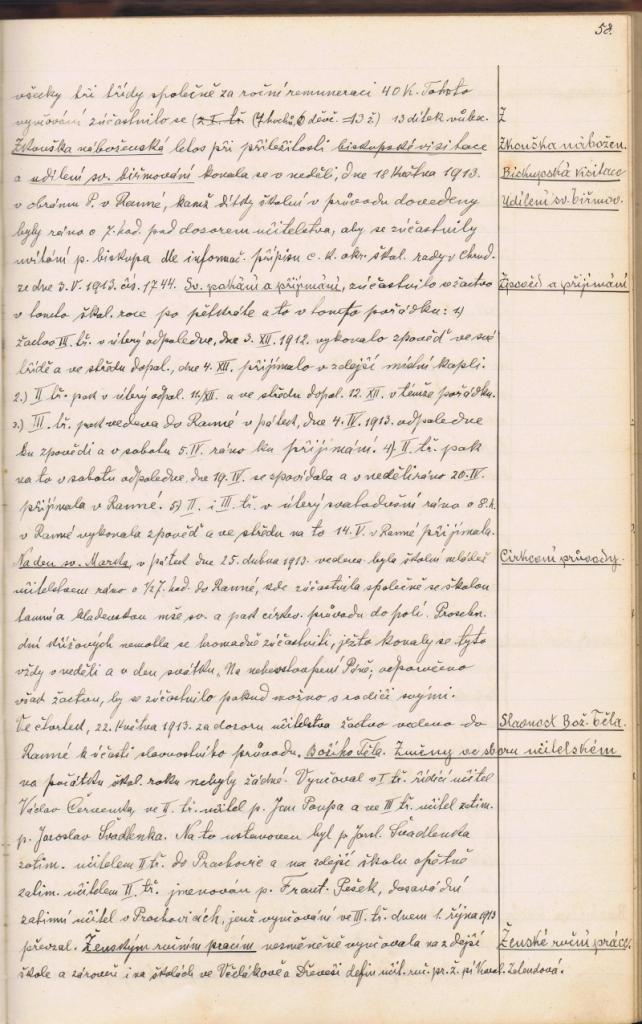 58.
všecky tři třídy společně za roční remuneraci 40 K. Tohoto
vyučování zúčastnilo se (z I. tř. (7 hochů 6 děvč. = 13 ž.) 13 dítek vůbec. Z
Zkouška náboženská letos při příležitosti biskupské visitace Zkouška nábožen.
a udílení sv. biřmování konala se v neděli, dne 18 května 1913. Bichupská visitace
v obrámu P. v Ranné, kamž dítky školní v průvodu dovedeny Udílení sv. biřmov.
byly ráno o 7. hod. pod dozorem učitelstva, aby se zúčastnily
uvítání p. biskupa dle informač. přípisu c. k. okr. škol. rady v Chrud.
ze dne 3. V. 1913. čís. 1744. Sv. pokání a přijímání, zúčastnilo se žactvo Zpověď a přijímání
v tomto škol. roce po pětkráte a to v tomto pořádku: 1)
žactvo III. tř. v úterý odpoledne, dne 3. XII. 1912. vykonalo zpověď ve své
třídě a ve středu dopol., dne 4. XII. přijímalo v zdejší místní kapli.
2.) II tř. pak v úterý odpol. 11/XII. a ve středu dopol. 12. XII. v témže pořádku.
3.) III. tř. pak vedena do Ranné v pátek, dne 4. IV. 1913. odpoledne
ku zpovědi a v sobotu 5. IV. ráno ku přijímání. 4) II. tř. pak
na to v sobotu odpoledne, dne 19. IV. se zpovídala a v neděli ráno 20. IV.
přijímala v Ranné. 5) II. i III. tř. v úterý svatodušní ráno o 8. h.
v Ranné vykonala zpověď a ve středu na to 14. V. v Ranné přijímala.
Na den sv. Marka, v pátek dne 25. dubna 1913. vedena byla školní mládež Církevní průvody.
učitelstvem ráno o 1/2 7. hod. do Ranné, kde zúčastnila společně se školou
tamní a kladenskou mše sv. a pak církev. průvodu do polí. Prosebn.
dní křížových nemohla se hromadně zúčastniti, ježto konaly se tyto
vždy v neděli a v den svátku „Na nebevstoupení Páně; odporučeno
však žactvu, by se zúčastnilo pokud možno s rodiči svými.
Ve čtvrtek, 22. května 1913. za dozoru učitelstva žactvo vedeno do Slavnost Bož. Těla.
Ranné k účasti slavnostního průvodu, Božího Těla. Změny ve sboru učitelském
na počátku škol. roku nebyly žádné. Vyučoval v I. tř. řídící učitel
Václav Červenka, ve II. tř. učitel p. Jan Poupa a ve III tř. učitel zatim.
p. Jaroslav Švadlenka. Na to ustanoven byl p. Jarsl. Švadlenka
zatim. učitelem II tř. do Prachovic a na zdejší školu opětně
zatim. učitelem II. tř. jmenován p. Frant. Pešek, dosavádní
zatimní učitel v Prachovicích, jenž vyučování ve III. tř. dnem 1. října 1913
převzal. Ženským ručním pracím nezměněně vyučovala na zdejší Ženské ruční práce.
škole a zároveň i na školách ve Včelákově a Dřevěši defin. učit. ruč. pr. ž. pí Karol. Zelendová.